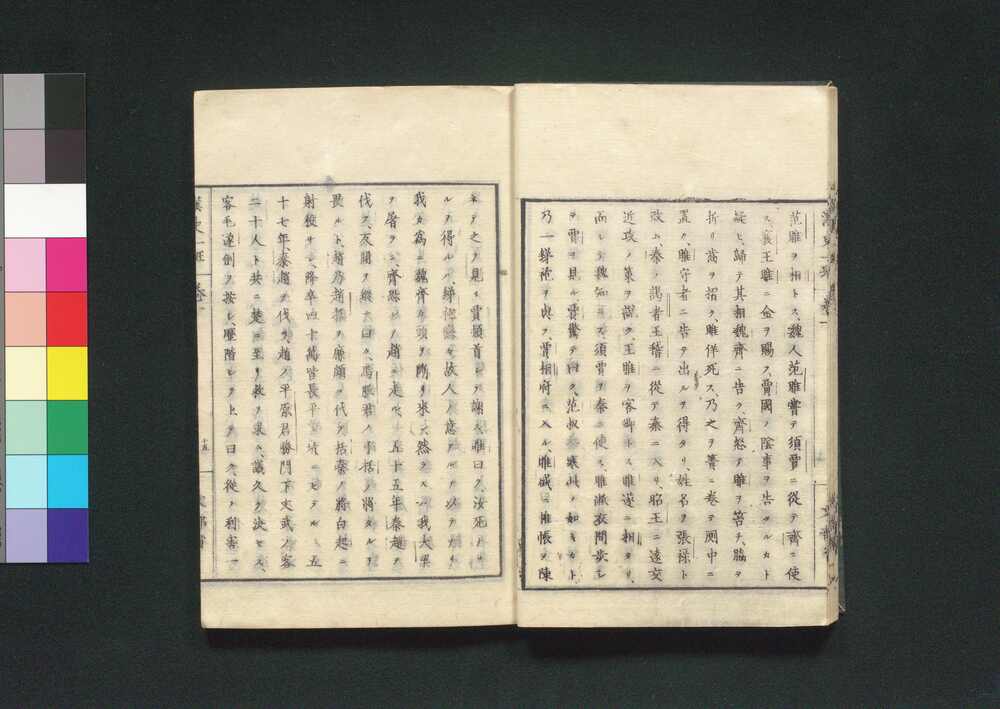 范雎ヲ相トス、魏人范雎嘗テ須賈ニ從テ齊ニ使
ス、王雎ニ金ヲ賜フ、賈國ノ陰事ヲ告タルカト
疑ヒ、歸テ其相魏齊ニ告ク、齊怒テ雎ヲ笞チ、脇ヲ
折リ齒ヲ招ク、雎佯死ス、乃之ヲ簀ニ卷テ厠中ニ
置ク、雎守者ニ告テ出ルヲ得タリ、姓名ヲ張祿ト
改ム、秦ノ謁者王稽ニ從テ秦ニ入リ昭王ニ遠交
近攻ノ策ヲ説ク、王雎ヲ客卿トス、雎遂ニ相タリ、
而シテ魏知ラス須賈ヲ秦ニ使ス、雎敝衣間歩シ
テ賈ヲ見ル、賈驚テ曰ク、范叔寒此ノ如キカト、
乃一綈袍ヲ與フ、賈相府ニ入ル、雎盛ニ帷帳ヲ陳
ネテ之ヲ見ル、賈頓首シテ謝ス、雎曰ク、汝死セサ
ルヲ得ルハ、綈袍戀々故人ノ意アルヲ以テナリ、
我カ爲ニ魏齊カ頭ヲ斬リ來レ、然ラスハ我大梁
ヲ屠ラン、齊懼レテ趙ニ走ル、五十五年秦趙ヲ
伐ツ、反間ヲ縱テ曰ク、馬服君ノ子括ノ將タルヲ
畏ルト、趙乃趙括ヲ廉頗ニ代フ、括秦ノ將白起ニ
射殺サレ、降卒四十萬皆長平ニ坑ニセラル、五
十七年、秦趙ヲ伐ツ、趙ノ平原君勝門下文武ノ客
二十人ト共ニ楚ニ至リ救ヲ求ム、議久ク決セス、
客毛遂劍ヲ按シ、歴階シテ上テ曰ク、從ノ利害、
漢史一班 卷一
十五